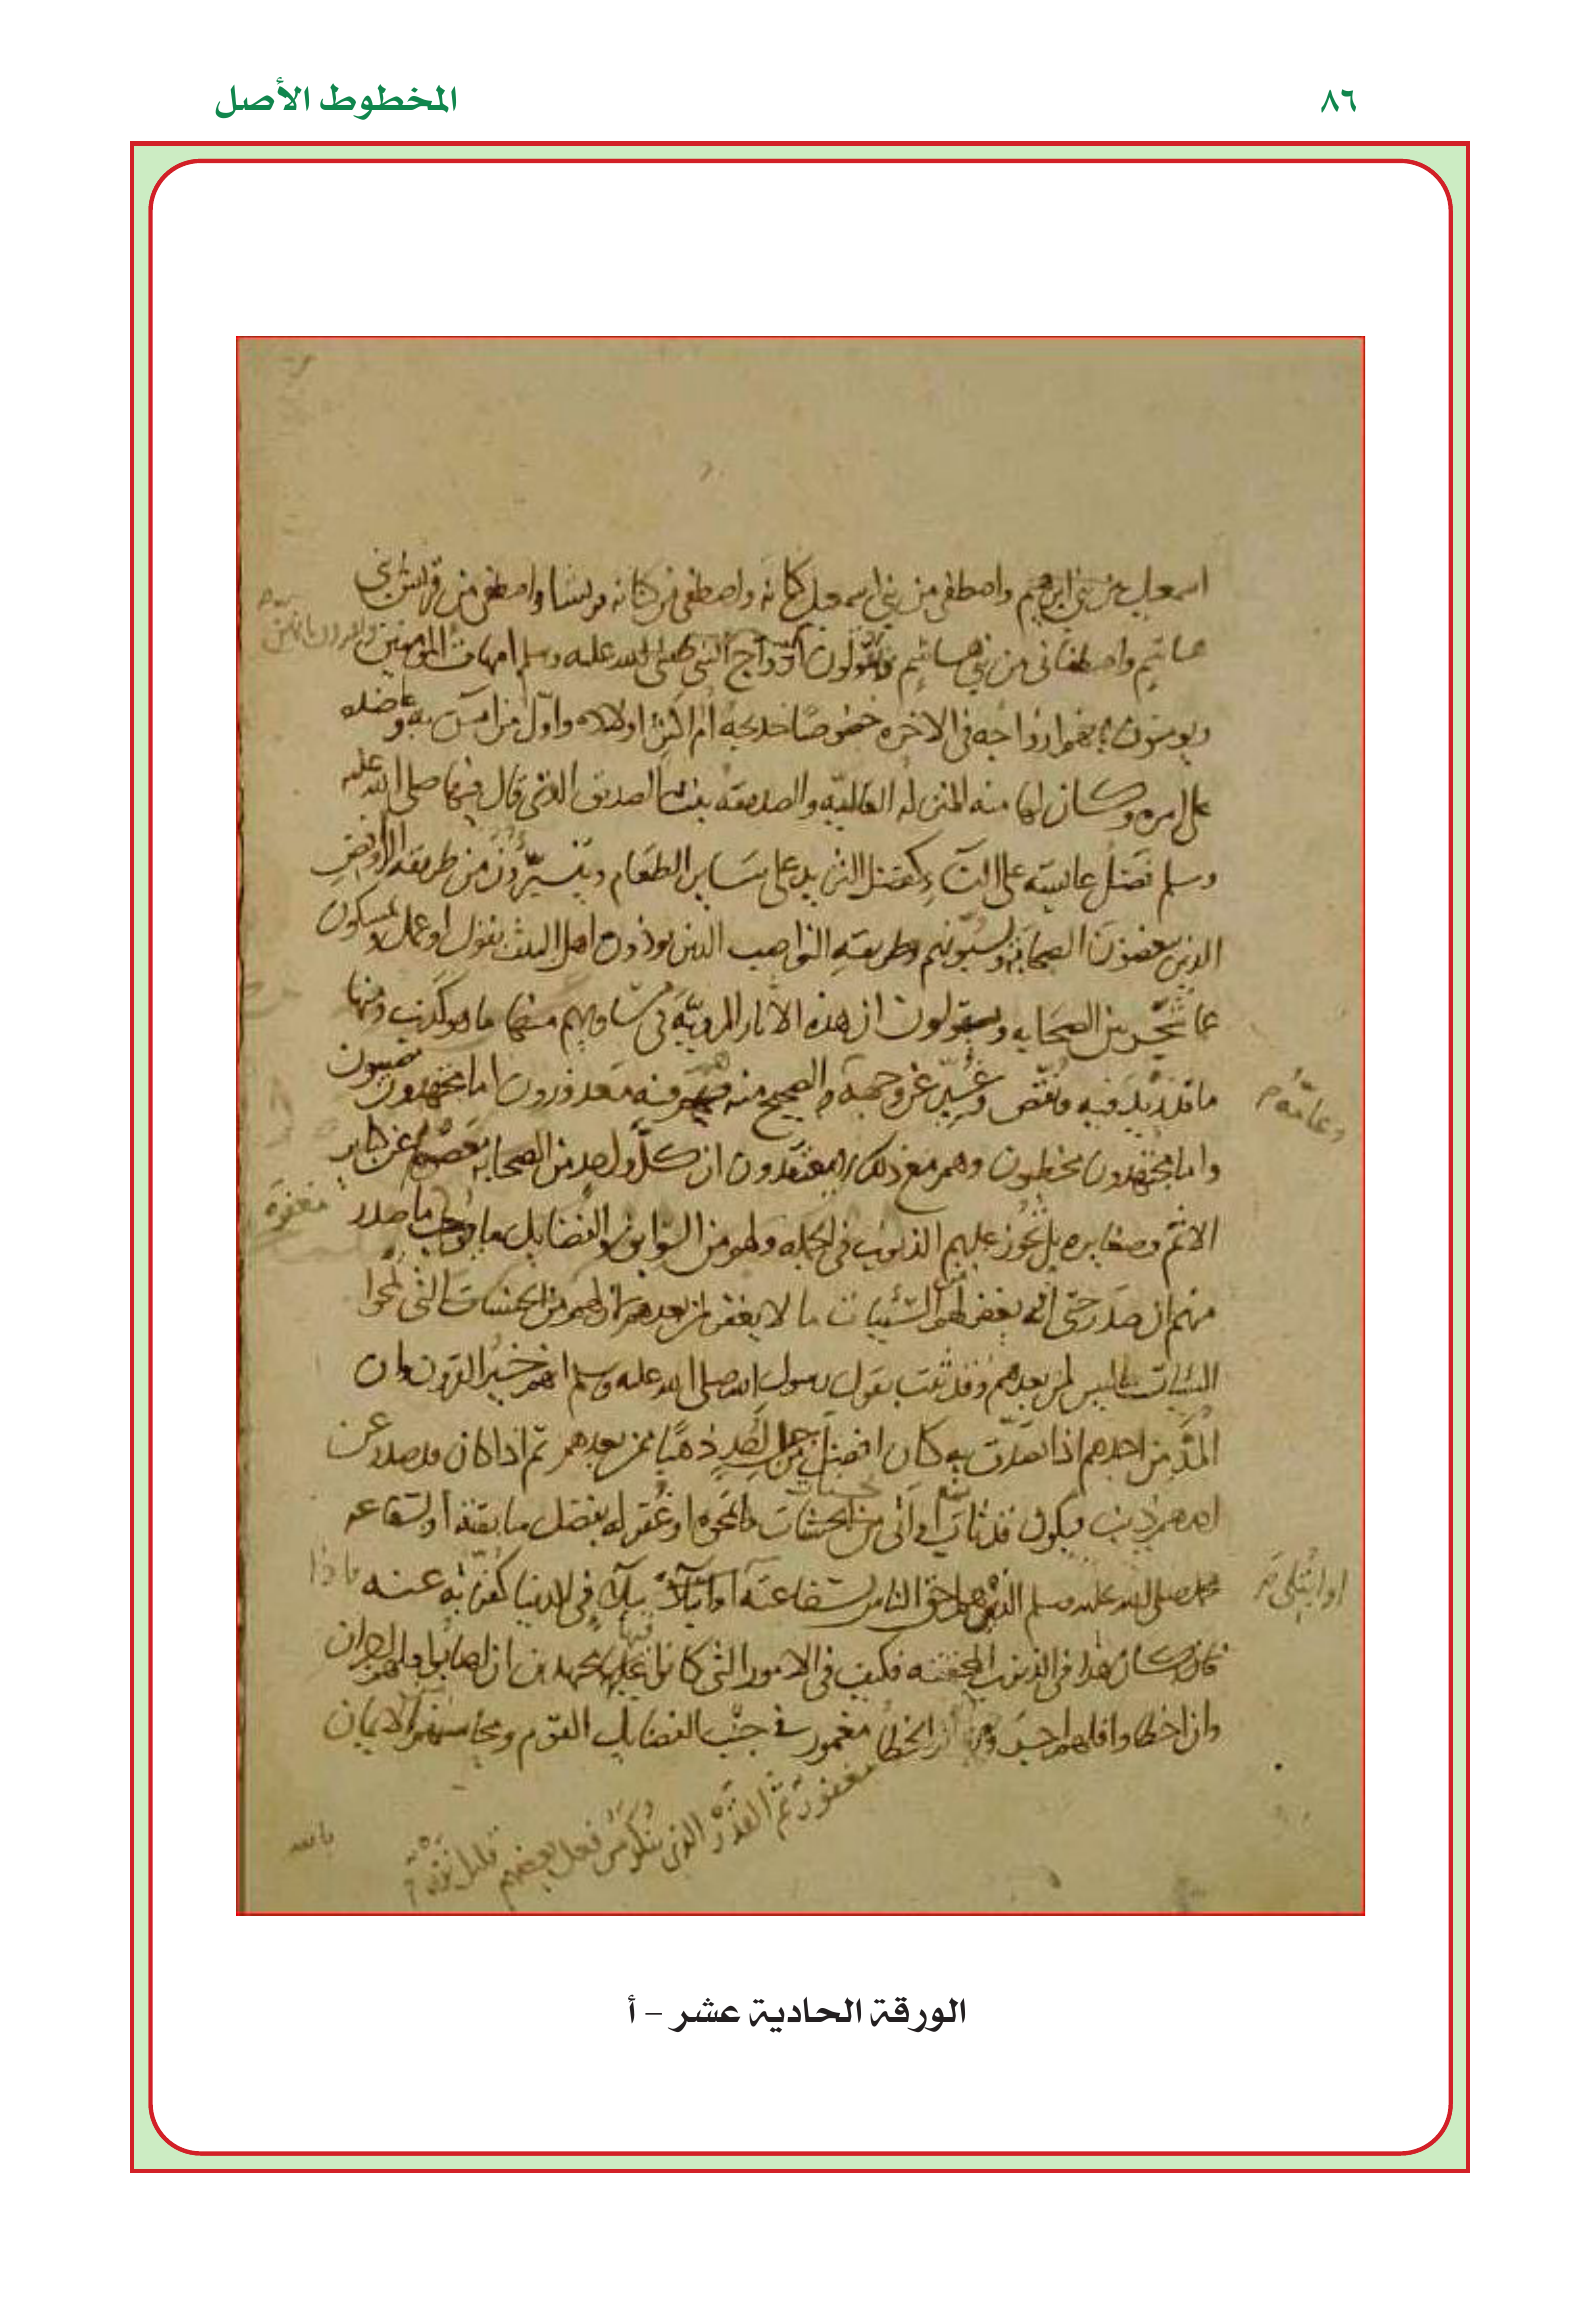 المخطوط الأصل
٨٦
اسمعيل من بني ابرهيم واصطفى من بني اسمعيل كنانه واصطفى من كنانه قريشا واصطفى من قريش بني
هاشم واصطفاني من بني هاشم ويتولون ازواج النبي صلى الله عليه وسلم امهات المومنين
ويومنون بانهن ازواجه في الاخره خصوصًا خديجة أم اكثر اولاده واول من امن به وعاضده
على امره وكان لها منه المنزله العاليه والصديقة بنت الصديق التي قال فيها صلى الله عليه
وسلم فضل عايشه على النساء كفضل الثريد على ساير الطعام ويتبرّؤن من طريقه الروافض
الذين يبغضون الصحابه ويسبونهم وطريقة النواصب الذين يوذون اهل البيت بقول او عمل ويمسكون
عما شجر بين الصحابه ويقولون ان هذه الاثار المروية في مساويهم منها ما هو كذب ومنها
ما قد زيد فيه ونقص وغير عن وجهه والصحيح منه هم فيه معذورون اما مجتهدون مصيبون
واما مجتهدون مخطيون وهم مع ذلك لا يعتقدون ان كل واحد من الصحابه معصوم عن كباير
الاثم وصغايره بل تجوز عليهم الذنوب في الجمله ولهم من السوابق والفضايل ما يوجب ما صدر
مغفرة
منهم ان صدر حتى انه يغفر لهم من السيئات ما لا يغفر لمن بعدهم لان لهم من الحسنات التي تمحوا
السيئات ما ليس لمن بعدهم وقد ثبت بقول رسول الله صلى الله عليه وسلم انهم خير القرون وان
المد من احدهم اذا تصدق به كان افضل من جبل احد ذهبًا ممن بعدهم ثم اذا كان قد صدر عن
احدهم ذنب فيكون قد تاب منه او اتى بحسنات تمحوه او غفر له بفضل سابقته او بشفاعه
محمد صلى الله عليه وسلم الذين هم احق الناس بشفاعته او ابتلي ببلاء في الدنيا كفر به عنه
فاذا
او ابتلي
كان هذا في الذنوب المحققه فكيف في الامور التي كانوا فيها مجتهدين ان اصابوا فلهم اجران
وان اخطاوا فلهم اجر واحد والخطأ مغمور في جنب الفضايل القوم ومحاسنهم الايمان
مغفور ثم القدر الذي ينكر من فعل بعضهم قليل نزر
بالله
الورقة الحادية عشر – أ